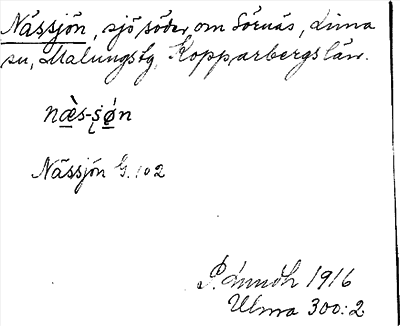 Nässjön, sjö söder om Sörnäs, Lima
sn, Malungs tg, Kopparbergs län.
næ̀s-ʂǿn
Nässjön G. 102
1916
Ulma 300:2